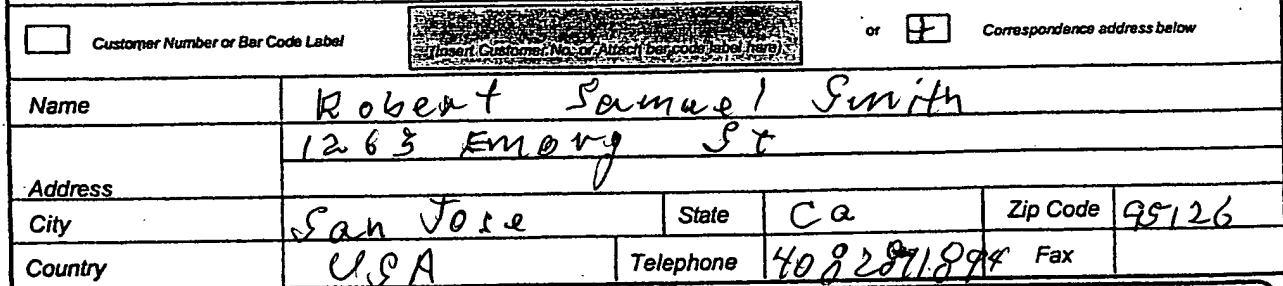 Customer Number or Bar Code Label (Insert Customer No. or Attach bar code label here) or Correspondence address below
Name Robert Samuel Smith
1263 Emory St
Address
City San Jose State Ca Zip Code 95126
Country USA Telephone 4082871894 Fax